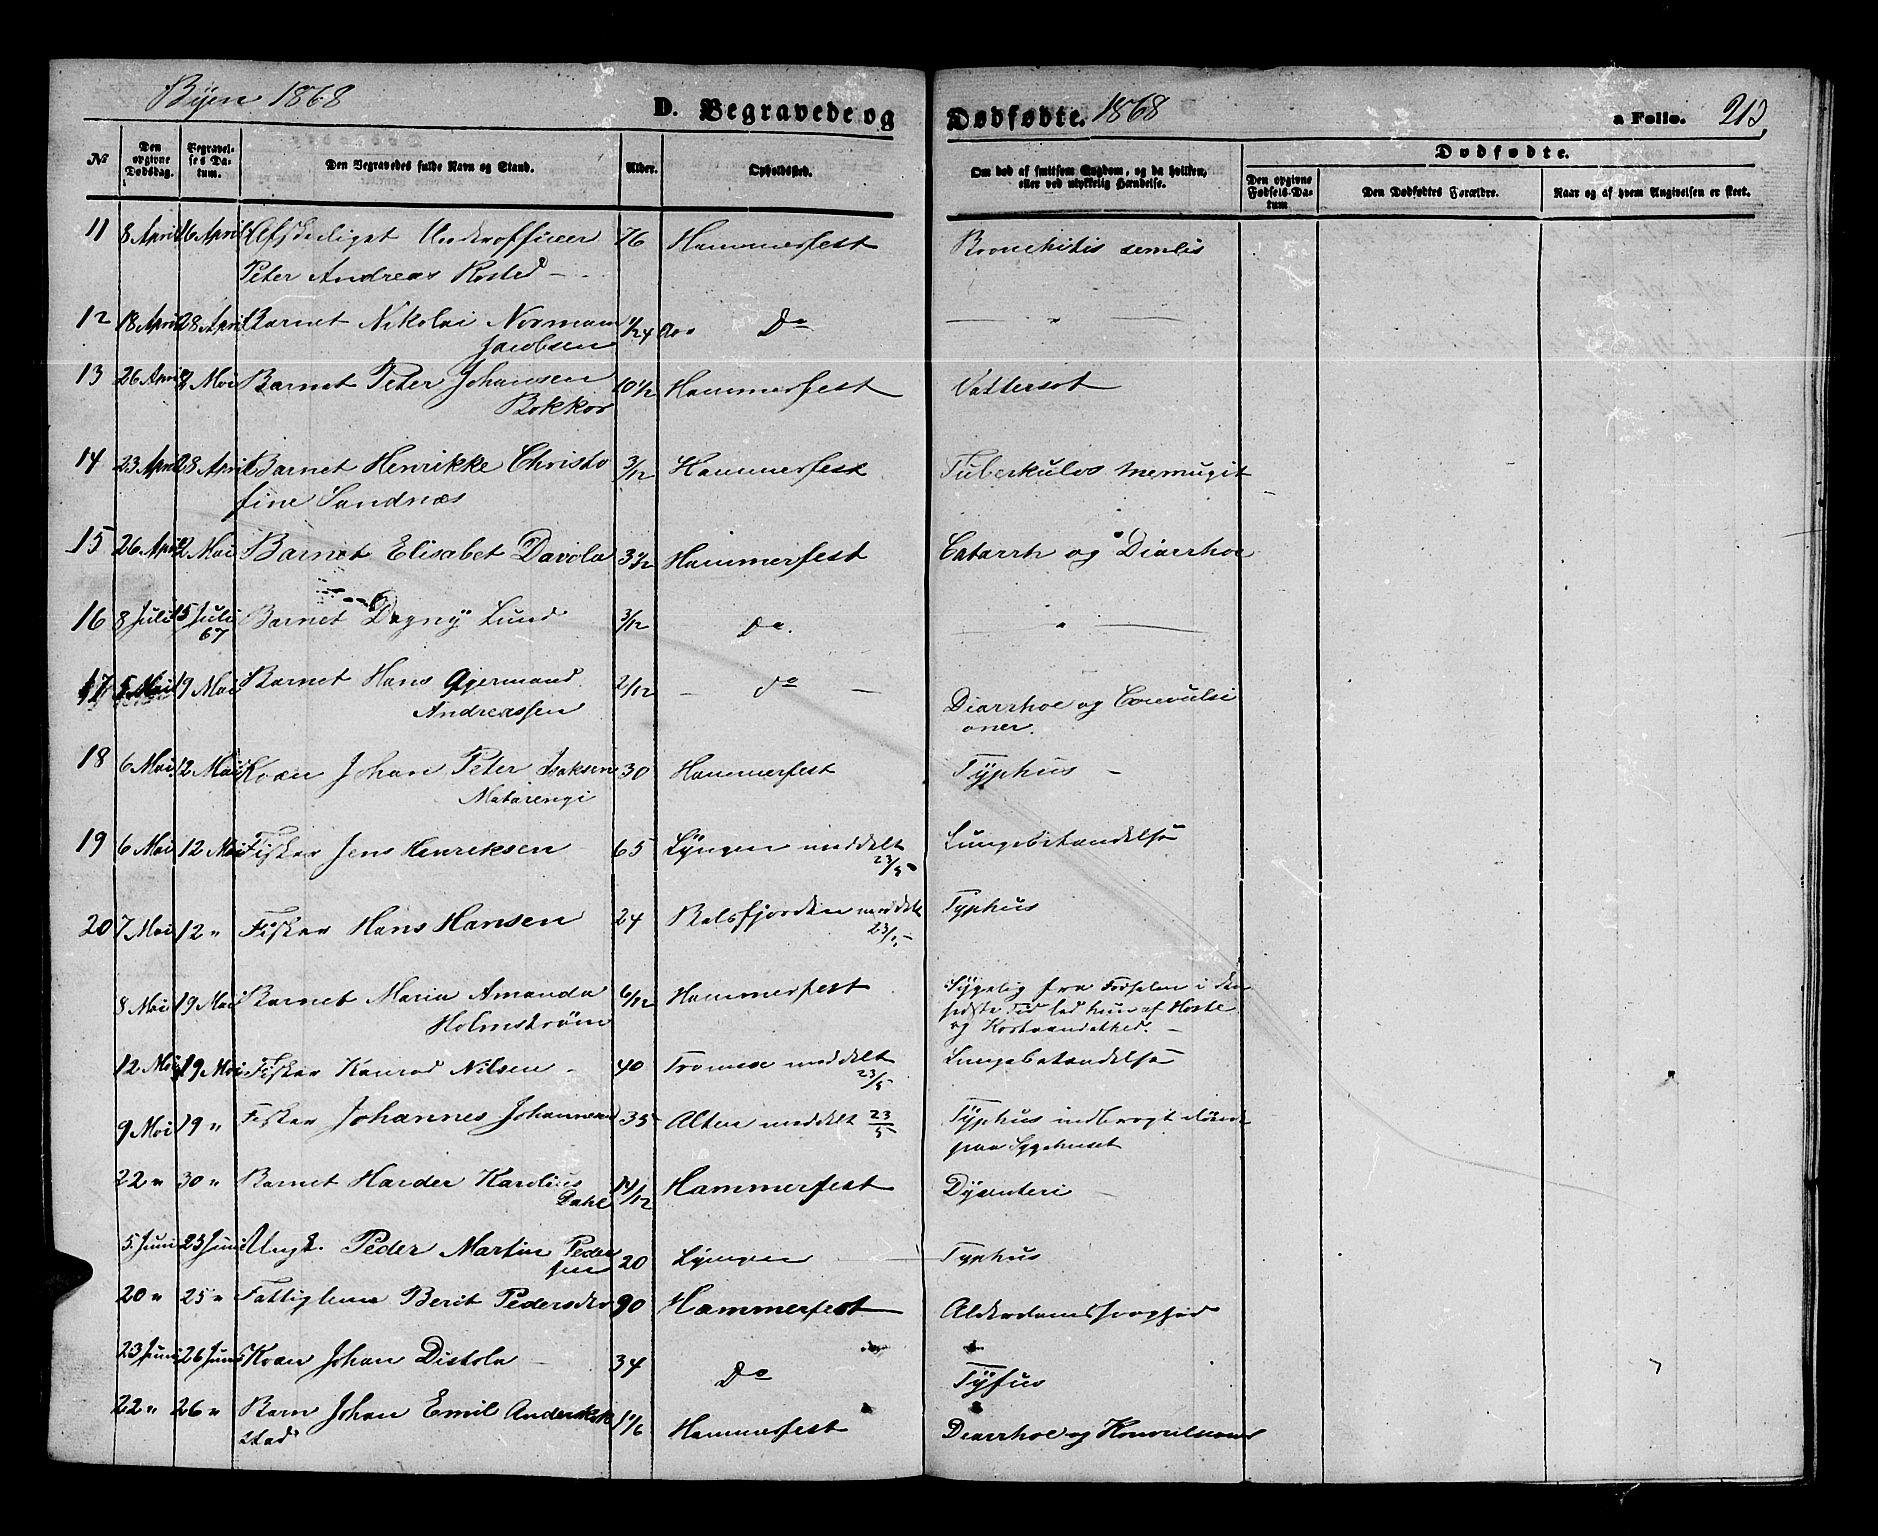 Byen 1868
D. Begravede og Dødfødte. 1868 a Folio. 213
№ Den opgivne Dødsdag. Begravelses Datum. Den Begravedes fulde Navn og Stand. Alder. Opholdssted. Om død af smitsom Sygdom, og da hvilken, eller ved ulykkelig Hændelse. Dødfødte.
Den opgivne Fødsels-Datum Den Dødfødtes Forældre. Naar og af hvem Angivelsen er skeet.
11 8 April 16 April Afskediget Underofficer 76 Hammerfest Bronchitis
Peter Andreas Rosted -
12 18 April 28 April Barnet Nikolai Normann 1/24 Do — " —
Jacobsen
13 26 April 8 Mai Barnet Peter Johansen 10 1/2 Hammerfest Vattersot
Bokkor
14 23 April 28 April Barnet Henrikke Christo 3/12 Hammerfest Tuberkulos
fine Sandnæs
15 26 April 2 Mai Barnet Elisabet Davola 3 1/2 Hammerfest Catarrh og Diarrhoe
16 8 Juli 15 Juli Barnet Dagny Lund 3/12 Do. — " —
67
17 5 Mai 19 Mai Barnet Hans Gjermand 2/12 - do -
Andreassen Diarrhoe og Convulsi
oner.
18 6 Mai 12 Mai Kvæn Johan Peter Isaksen 30 Hammerfest Typhus -
Matarengi
19 6 Mai 12 Mai Fisker Jens Henriksen 65 Lyngen meddelt Lungebetændelse
23/5
20 7 Mai 12 " Fisker Hans Hansen 24 Balsfjorden meddelt Typhus
23/5
8 Mai 19 Mai Barnet Maria Amanda 6/12 Hammerfest Sygelig fra Fødselen i den
Holmstrøm sidste Tid led hun af Hoste
og
12 Mai 19 Mai Fisker Konrad Nilsen - 40 Tromsø meddelt Lungebetændelse
23/5
9 Mai 19 " Fisker Johannes Johannesen 35 Alten meddelt 23/5 Typhus indbragt døende
paa Sygehuset
22 " 30 " Barnet Harder Karolius 11/12 Hammerfest Dysenteri
Dahl
5 Juni 23 Juni Ungk. Peder Martin Peder 20 Lyngen Typhus
sen
20 " 25 " Fattiglem Berit Pedersdtr 90 Hammerfest Alderdomssvaghed
23 Juni 26 Juni Kvæn Johan Distola - 34 Do Tyfus
22 " 26 " Barn Johan Emil 1 1/6 Hammerfest Diarrhoe og
stad